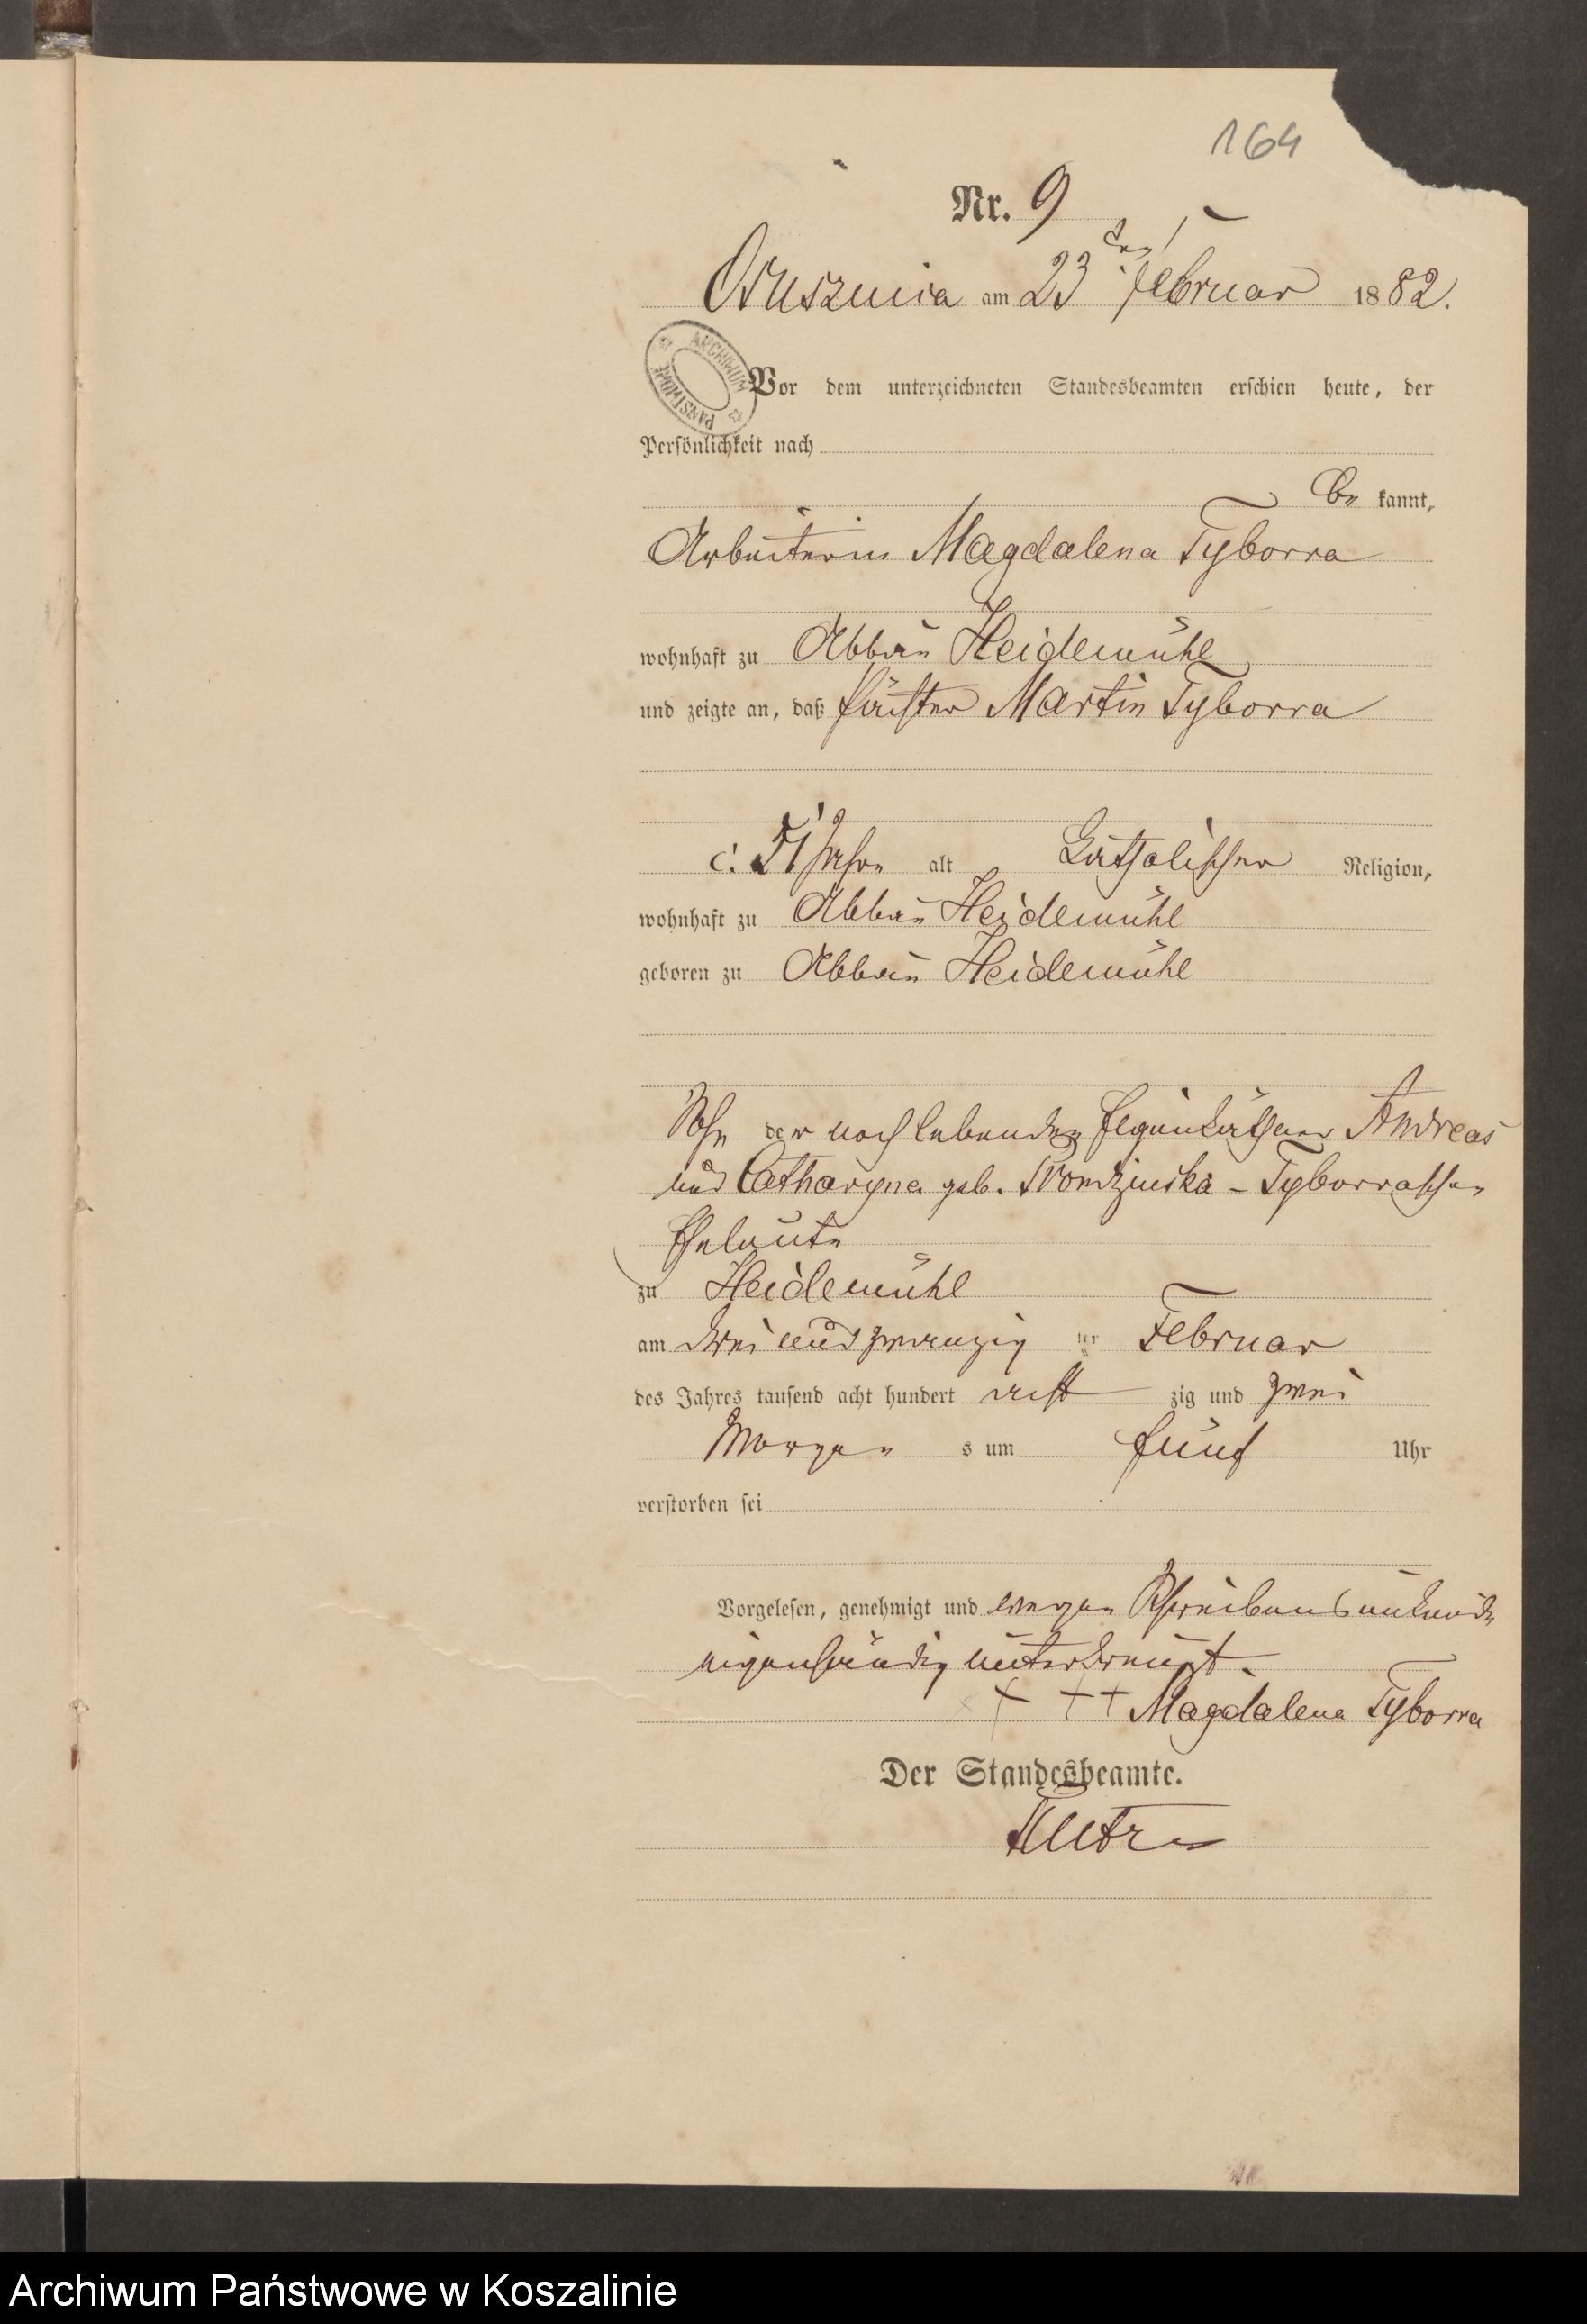 164
Nr. 9
Osusznica am 23ten Februar 1882.
ARCHIWUM PAŃSTWOWE
Vor dem unterzeichneten Standesbeamten erschien heute, der
Persönlichkeit nach
be kannt,
Arbeiterin Magdalena Tyborra
wohnhaft zu Abbau Heidemühl
und zeigte an, daß Martin Tyborra
c. 51 Jahre alt katholischer Religion,
wohnhaft zu Abbau Heidemühl
geboren zu Abbau Heidemühl
Sohn der noch lebenden Eigenkäthner Andreas
und Catharyna geb. - Tyborraschen
Eheleute
zu Heidemühl
am drei und zwanzig ten Februar
des Jahres tausend acht hundert acht zig und zwei
Morgen s um fünf Uhr
verstorben sei
Vorgelesen, genehmigt und wegen Schreibensunkunde
eigenhändig unterkreuzt.
+ + + Magdalena Tyborra
Der Standesbeamte.
Archiwum Państwowe w Koszalinie